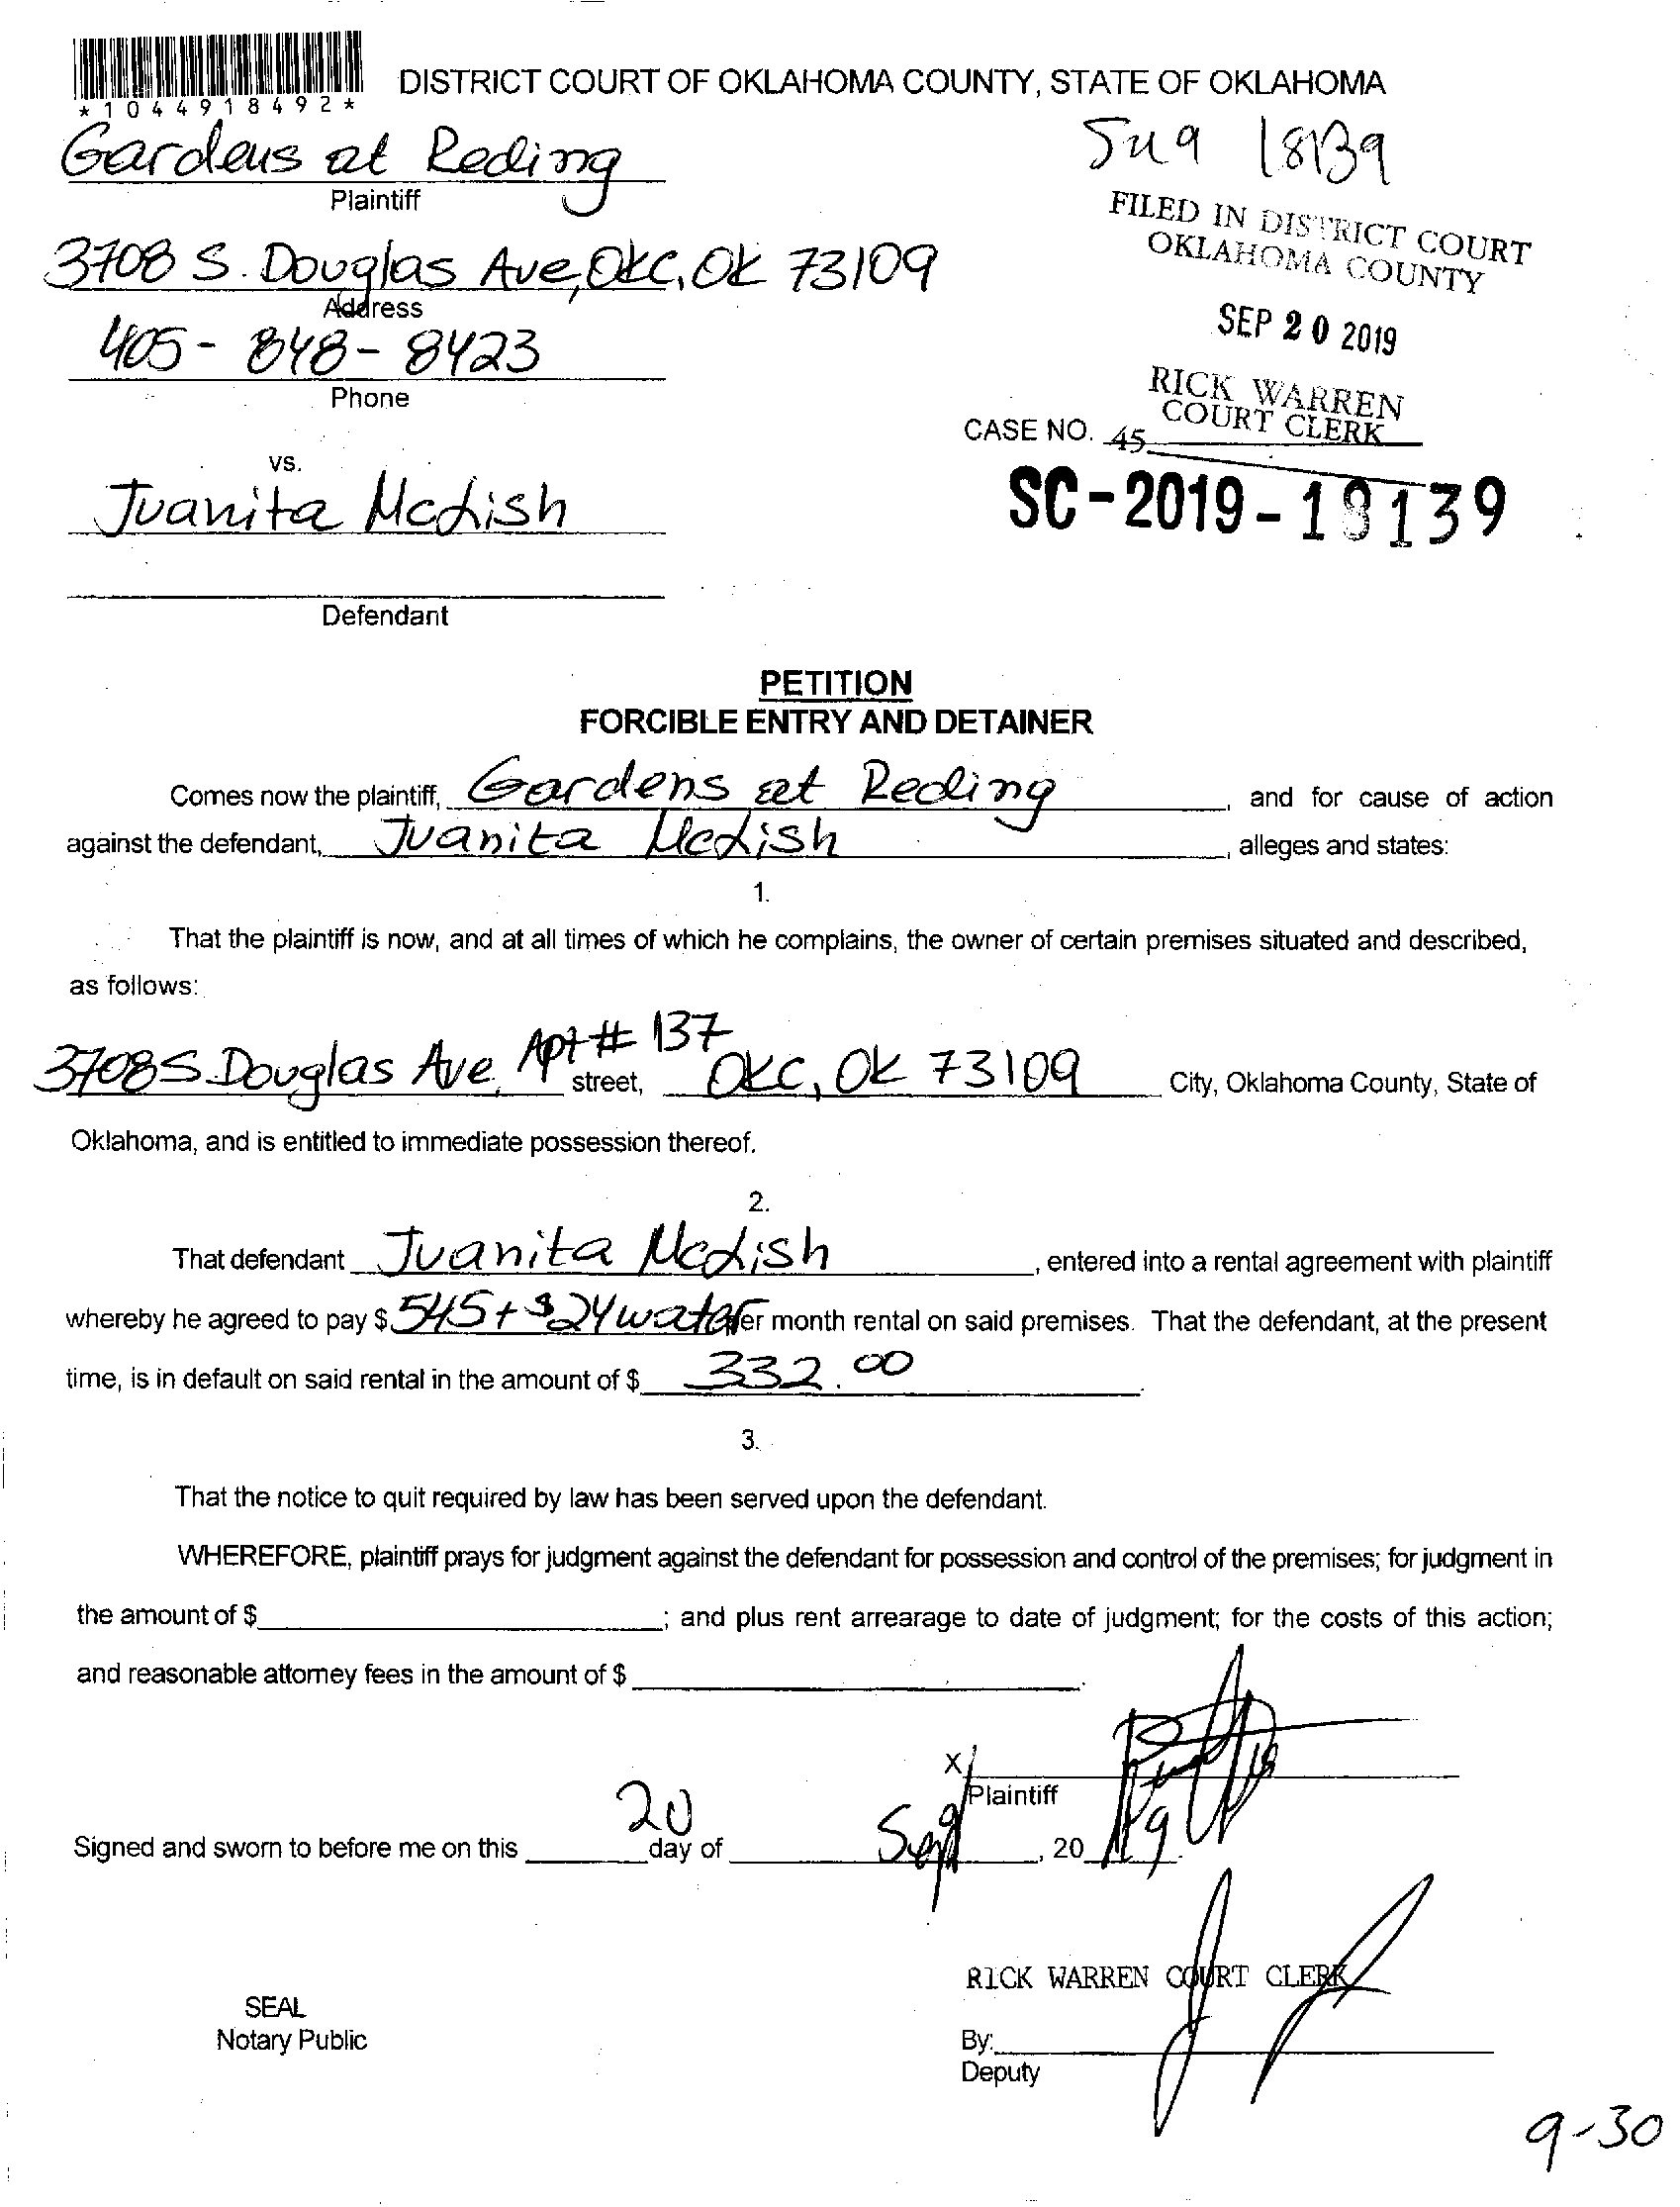 *1044918492*
DISTRICT COURT OF OKLAHOMA COUNTY, STATE OF OKLAHOMA
Gardens at Reding
Plaintiff
18139
3708 S. Douglas Ave, OKC, OK 73109
Address
FILED IN DISTRICT COURT
OKLAHOMA COUNTY
405-848-8423
Phone
SEP 20 2019
RICK WARREN
COURT CLERK
CASE NO.
45
vs.
Juanita McLish
SC-2019-18139
Defendant
PETITION
FORCIBLE ENTRY AND DETAINER
Comes now the plaintiff, Gardens at Reding, and for cause of action
against the defendant, Juanita McLish, alleges and states:
1.
That the plaintiff is now, and at all times of which he complains, the owner of certain premises situated and described,
as follows:
3708 S. Douglas Ave, Apt # 137 street, OKC, OK 73109 City, Oklahoma County, State of
Oklahoma, and is entitled to immediate possession thereof.
2.
That defendant Juanita McLish, entered into a rental agreement with plaintiff
whereby he agreed to pay $ 545 + $24 water per month rental on said premises. That the defendant, at the present
time, is in default on said rental in the amount of $ 332.00.
3.
That the notice to quit required by law has been served upon the defendant.
WHEREFORE, plaintiff prays for judgment against the defendant for possession and control of the premises; for judgment in
the amount of $ ; and plus rent arrearage to date of judgment; for the costs of this action;
and reasonable attorney fees in the amount of $ .
X
Plaintiff
Signed and sworn to before me on this 20 day of Sept, 2019.
RICK WARREN COURT CLERK
SEAL
Notary Public
By:
Deputy
9-30